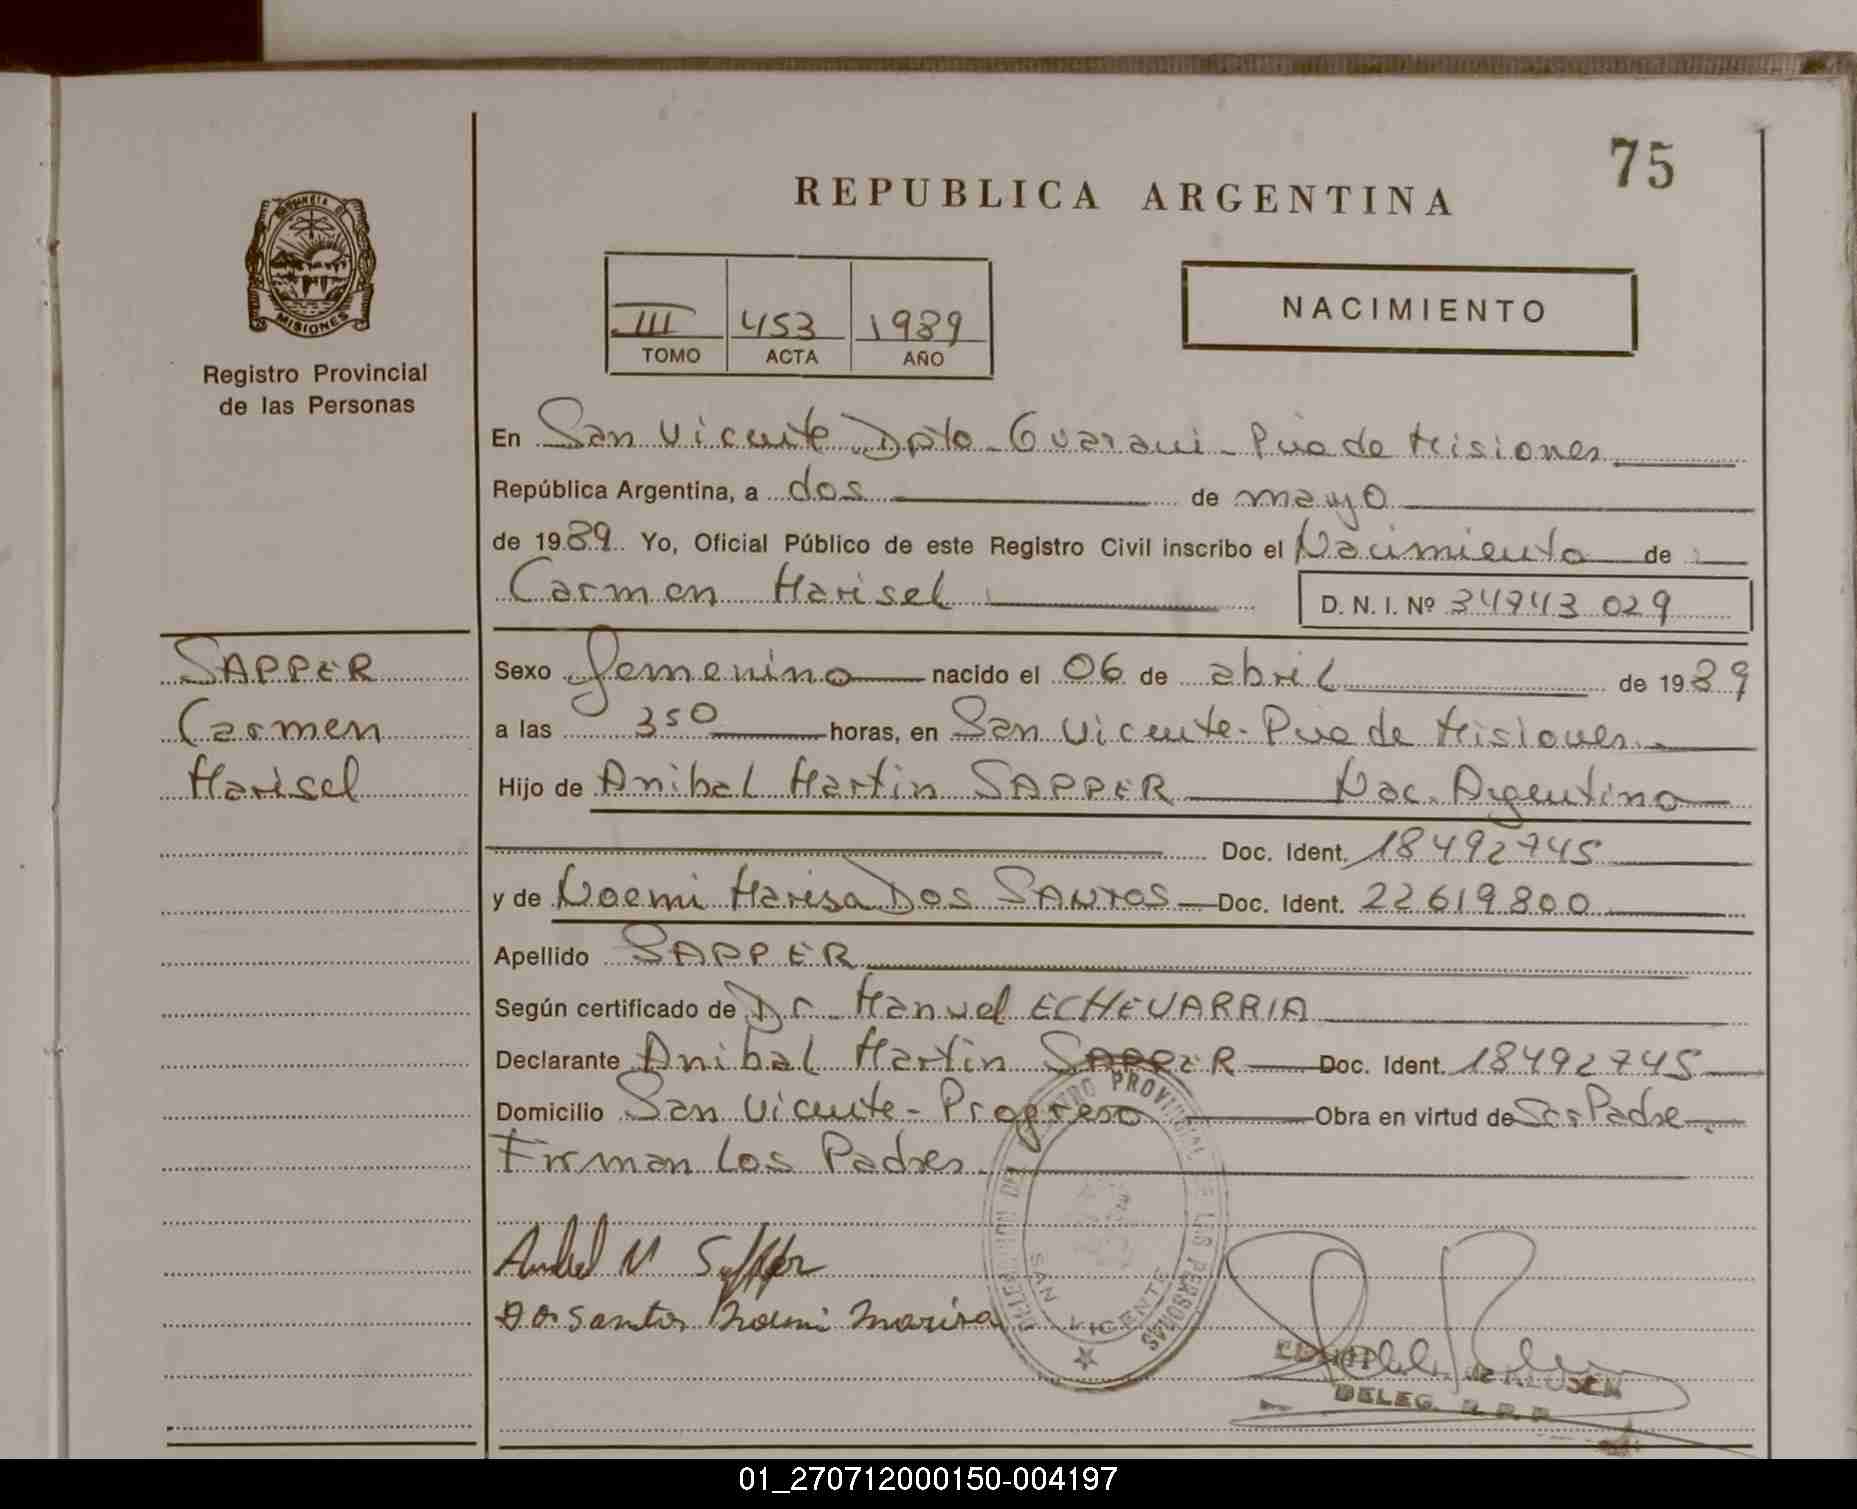 75
REPUBLICA ARGENTINA
MISIONES
Registro Provincial
de las Personas
III 453 1989
TOMO ACTA AÑO
NACIMIENTO
En San Vicente Dpto. Guarani - Pcia de Misiones
República Argentina, a dos de mayo
de 1989. Yo, Oficial Público de este Registro Civil inscribo el Nacimiento de :
Carmen Marisel D. N. I. Nº 34943 029
SAPPER
Carmen
Marisel
Sexo femenino nacido el 06 de abril de 1989
a las 350 horas, en San Vicente - Pcia de Misiones
Hijo de Anibal Martin SAPPER Nac. Argentino
Doc. Ident. 18492745
y de Noemi Marisa DOS SANTOS Doc. Ident. 22619800
Apellido SAPPER
Según certificado de Dr. Manuel ECHEVARRIA
Declarante Anibal Martin SAPPER Doc. Ident. 18492745
Domicilio San Vicente - Progreso Obra en virtud de Ser Padre
Firman los Padres
Anibal M Sapper
Dos Santos Noemi Marisa
DELEGACION DEL REGISTRO PROVINCIAL DE LAS PERSONAS
SAN VICENTE
DELEG. R. P. P.
01_270712000150-004197